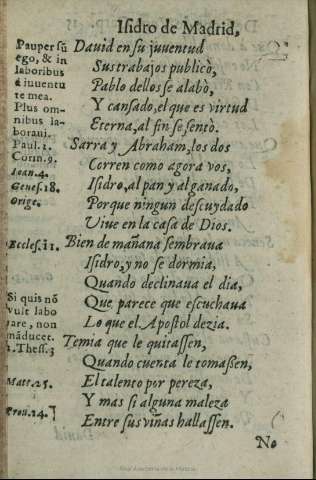 Isidro de Madrid,
Pauper sũ
ego, & in
laboribus
à iuuentu
te mea.
Plus om-
nibus la-
boraui.
Paul. 1.
Corin. 9.
Ioan. 4.
Genes. 18.
Orige.
Eccles. 11.
Si quis nõ
vult labo
rare, non
mãducet.
2. Thess. 3
Matt. 25.
Prou. 24.
Dauid en su juuentud
Sus trabajos publicò,
Pablo dellos se alabò,
Y cansado, el que es virtud
Eterna, al fin se sentò.
Sarra y Abraham, los dos
Corren como agora vos,
Isidro, al pan y al ganado,
Porque ningun descuydado
Viue en la casa de Dios.
Bien de mañana sembraua
Isidro, y no se dormia,
Quando declinaua el dia,
Que parece que escuchaua
Lo que el Apostol dezia.
Temia que le quitassen,
Quando cuenta le tomassen,
El talento por pereza,
Y mas si alguna maleza
Entre sus viñas hallassen.
No
Real Academia de la Historia